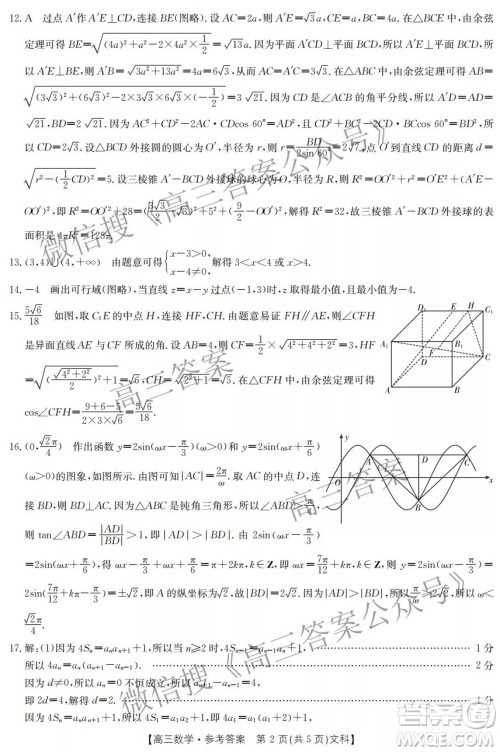 12. A 过点 A′作 A′E⊥CD,连接 BE(图略). 设 AC=2a,则 A′E=√3a,CE=a. 在△BCE 中,由余弦
定理可得 BE=√((4a)²+a²-2×4a²×1/2)=√13a. 因为平面 A′CD⊥平面 BCD,所以 A′E⊥平面 BCD,所
以 A′E⊥BE,则 A′B=√(3a²+13a²)=4a=6√3,即 AC=3√3. 在△ABC 中,由余弦定理可得 AB
=√((3√3)²+(6√3)²-2×3√3×6√3×(-1/2))=3√21. 因为 CD 是∠ACB 的角平分线,所以 AD=
√21,BD=2√21. 因为 AC²+CD²-2AC·CDcos 60°=AD²,且 CD²+BC²-2BC·CDcos 60°=
BD²,所以 CD=2√3. 设△BCD 外接圆的圆心为 O′,半径为 r,则 r=BD/(2sin 60°)=2√7,点 O′到直线 CD 的距离 d
=√(r²-(1/2CD)²)=5. 设三棱锥 A′-BCD 外接球的球心为 O,半径为 R,则 R²=OO′²+r²=d²+(A′E-
OO′)²,即 R²=OO′²+28=
+5²+(9/2-OO′)²,解得 R²=32,故三棱锥 A′-BCD 外接球的表
面积是 4πR²=128π.
13. (3,4)∪(4,+∞) 由题意可得{x-3>0, x-4≠0,解得 3<x<4 或 x>4.
14. -4 画出可行域(图略),当直线 z=x-y 过点(-1,3)时,z 取得最小值,且最小值为-4.
15. 5√6/18 如图,取 C₁E 的中点 H,连接 HF,CH. 由题意易证 FH∥AE,则∠CFH
是异面直线 AE 与 CF 所成的角. 设 AB=4,则 CF=1/2×√(4²+4²+4²)=2√3,HF
=
+1=√6,CH=√(4²+1²)=√17. 在△CFH 中,由余弦定理可得
A
B
C
D
E
F
H
A₁
B₁
D₁
16. (0,√2/4π) 作出函数 y=2sin(ωx-π/3)和 y=2sin(ωx+π/6)
(ω>0)的图象,如图所示. 由图可知|AC|=2π/ω. 取 AC 的中点 D,连
接 BD. 因为△ABC 是钝角三角形,所以∠ABC>π/2,
则 tan∠ABD=|AD|/|BD|>1,即|AD|>|BD|. 由 2sin(ωx-π/3)=
2sin(ωx+π/6),得 ωx-π/3+ωx+π/6=π+2kπ,k∈Z,即 ωx=7π/12+kπ,k∈Z,则 y=2sin(7π/12+kπ+π/6)=
2sin(7π/12+π/6+kπ)=±√2,即 A 的纵坐标为√2,故|BD|=2√2. 因为|AD|>|BD|,所以π/ω>2√2,即 0<ω
<√2/4π.
y
O
x
A
B
C
D
17. 解:(1)因为 4Sₙ=aₙaₙ₊₁+1,所以当 n≥2 时,4Sₙ₋₁=aₙ₋₁aₙ+1, 1 分
所以 4aₙ=aₙ(aₙ₊₁-aₙ₋₁). 2 分
因为 d≠0,所以 aₙ≠0 不恒成立,所以 aₙ₊₁-aₙ₋₁=4,
即 2d=4,解得 d=2. 4 分
因为 4Sₙ=aₙaₙ₊₁+1,所以 4S₁=a₁a₂+1,
【高三数学·参考答案 第 2 页(共 5 页)文科】
微信搜《高三答案公众号》
微信搜《高三答案公众号》
高三答案